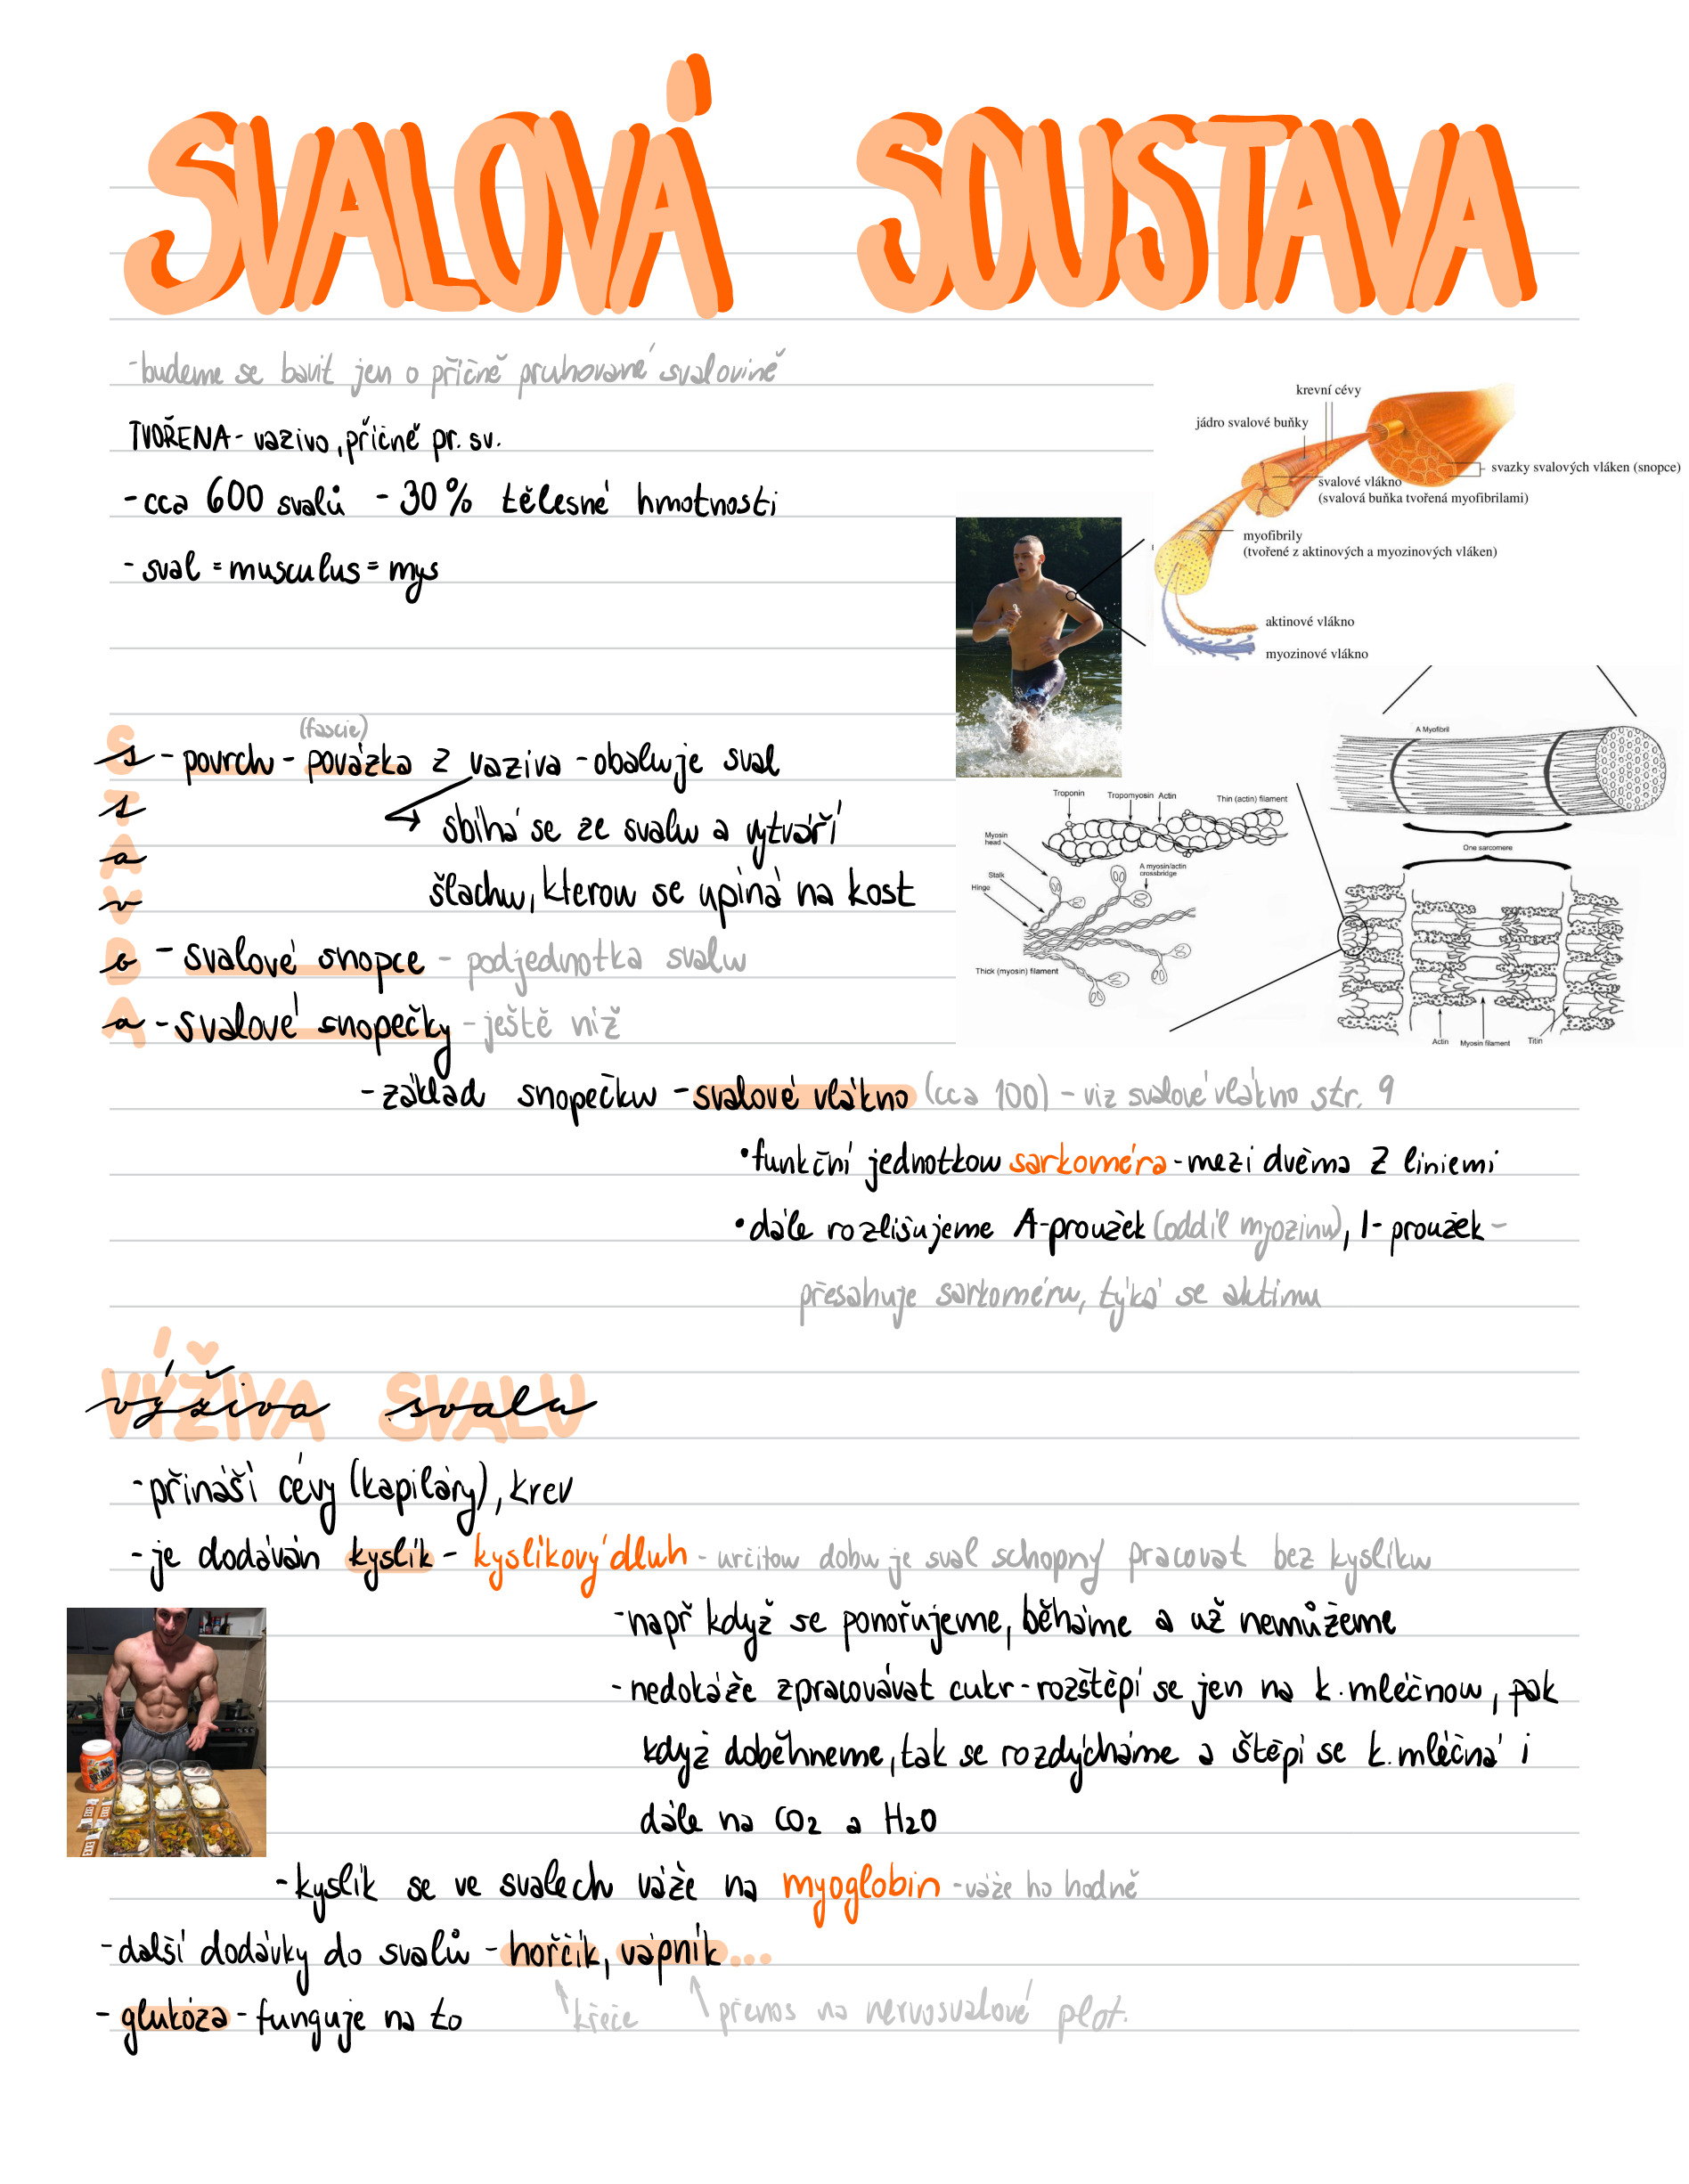 SVALOVÁ SOUSTAVA
-budeme se bavit jen o příčně pruhované svalovině
TVOŘENA - vazivo, příčně pr. sv.
-cca 600 svalů - 30% tělesné hmotnosti
-sval = musculus = mys
krevní cévy
jádro svalové buňky
svazky svalových vláken (snopce)
svalové vlákno
(svalová buňka tvořená myofibrilami)
myofibrily
(tvořené z aktinových a myozinových vláken)
aktinové vlákno
myozinové vlákno
A Myofibril
One sarcomere
Actin
Myosin filament
Titin
Troponin
Tropomyosin
Actin
Thin (actin) filament
Myosin
head
Stalk
Hinge
A myosin/actin
crossbridge
Thick (myosin) filament
STAVBA
(fascie)
-povrch - povázka z vaziva - obaluje sval
sbíhá se ze svalu a vytváří
šlachu, kterou se upíná na kost
- svalové snopce - podjednotka svalu
- svalové snopečky - ještě níž
-základ snopečku - svalové vlákno (cca 100) - viz svalové vlákno str. 9
•funkční jednotkou sarkoméra - mezi dvěma Z liniemi
•dále rozlišujeme A-proužek (oddíl myozinu), I-proužek -
přesahuje sarkoméru, týká se aktinu
VÝŽIVA SVALU
výživa svalu
-přináší cévy (kapiláry), krev
-je dodáván kyslík - kyslíkový dluh - určitou dobu je sval schopný pracovat bez kyslíku
-např když se ponořujeme, běháme a už nemůžeme
-nedokáže zpracovávat cukr - rozštěpí se jen na k. mléčnou, pak
když doběhneme, tak se rozdýcháme a štěpí se k. mléčná i
dále na CO2 a H2O
-kyslík se ve svalech váže na myoglobin - váže ho hodně
-další dodávky do svalů - hořčík, vápník...
- glukóza - funguje na to
křeče
přenos na nervosvalové plot.